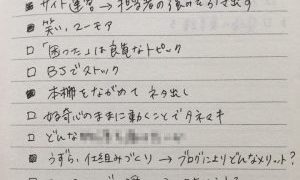 ■ サイト運営→担当者の強みを引き出す
□ 笑い、ユーモア
□ 「困った」は良質なトピック
□ BJでストック
■ 本棚をながめて ネタ出し
□ 好奇心のままに動くことでタネマキ
□ どんな
■ うずらい 仕組みづくり→ブログによりどんなメリット?